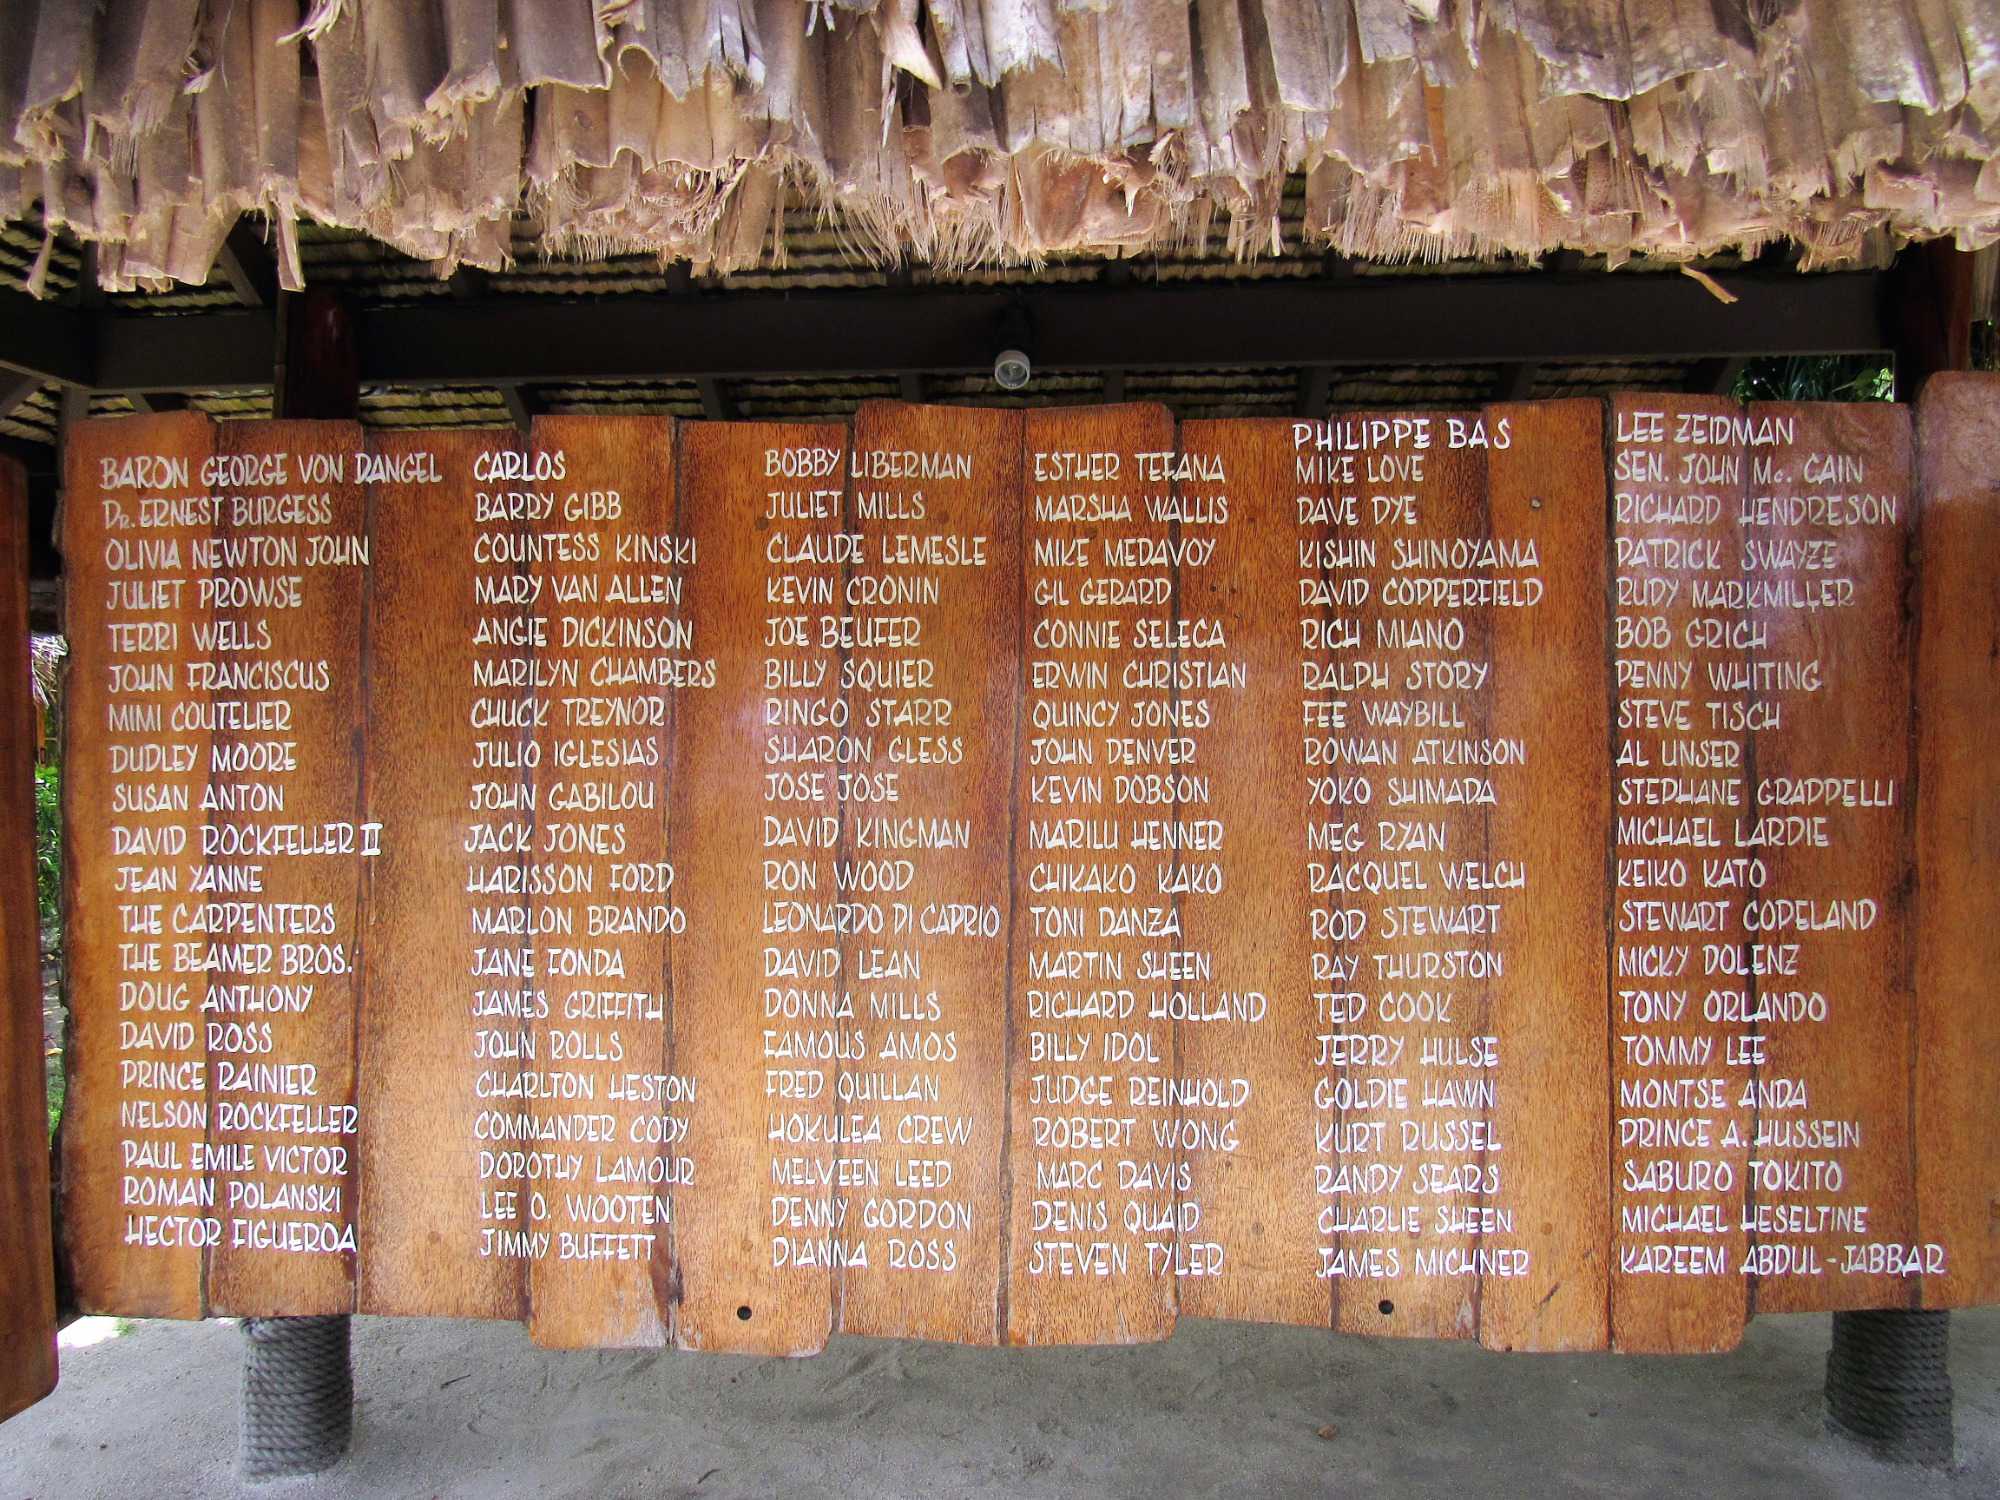 BARON GEORGE VON DANGEL
DR. ERNEST BURGESS
OLIVIA NEWTON JOHN
JULIET PROWSE
TERRI WELLS
JOHN FRANCISCUS
MIMI COUTELIER
DUDLEY MOORE
SUSAN ANTON
DAVID ROCKFELLER II
JEAN YANNE
THE CARPENTERS
THE BEAMER BROS.
DOUG ANTHONY
DAVID ROSS
PRINCE RAINIER
NELSON ROCKFELLER
PAUL EMILE VICTOR
ROMAN POLANSKI
HECTOR FIGUEROA
CARLOS
BARRY GIBB
COUNTESS KINSKI
MARY VAN ALLEN
ANGIE DICKINSON
MARILYN CHAMBERS
CHUCK TREYNOR
JULIO IGLESIAS
JOHN GABILOU
JACK JONES
HARISSON FORD
MARLON BRANDO
JANE FONDA
JAMES GRIFFITH
JOHN ROLLS
CHARLTON HESTON
COMMANDER CODY
DOROTHY LAMOUR
LEE O. WOOTEN
JIMMY BUFFETT
BOBBY LIBERMAN
JULIET MILLS
CLAUDE LEMESLE
KEVIN CRONIN
JOE BEUFER
BILLY SQUIER
RINGO STARR
SHARON GLESS
JOSE JOSE
DAVID KINGMAN
RON WOOD
LEONARDO DI CAPRIO
DAVID LEAN
DONNA MILLS
FAMOUS AMOS
FRED QUILLAN
HOKULEA CREW
MELVEEN LEED
DENNY GORDON
DIANNA ROSS
ESTHER TEFANA
MARSHA WALLIS
MIKE MEDAVOY
GIL GERARD
CONNIE SELECA
ERWIN CHRISTIAN
QUINCY JONES
JOHN DENVER
KEVIN DOBSON
MARILU HENNER
CHIKAKO KAKO
TONI DANZA
MARTIN SHEEN
RICHARD HOLLAND
BILLY IDOL
JUDGE REINHOLD
ROBERT WONG
MARC DAVIS
DENIS QUAID
STEVEN TYLER
PHILIPPE BAS
MIKE LOVE
DAVE DYE
KISHIN SHINOYAMA
DAVID COPPERFIELD
RICH MIANO
RALPH STORY
FEE WAYBILL
ROWAN ATKINSON
YOKO SHIMADA
MEG RYAN
RACQUEL WELCH
ROD STEWART
RAY THURSTON
TED COOK
JERRY HULSE
GOLDIE HAWN
KURT RUSSEL
RANDY SEARS
CHARLIE SHEEN
JAMES MICHNER
LEE ZEIDMAN
SEN. JOHN Mc. CAIN
RICHARD HENDRESON
PATRICK SWAYZE
RUDY MARKMILLER
BOB GRICH
PENNY WHITING
STEVE TISCH
AL UNSER
STEPHANE GRAPPELLI
MICHAEL LARDIE
KEIKO KATO
STEWART COPELAND
MICKY DOLENZ
TONY ORLANDO
TOMMY LEE
MONTSE ANDA
PRINCE A. HUSSEIN
SABURO TOKITO
MICHAEL HESELTINE
KAREEM ABDUL-JABBAR